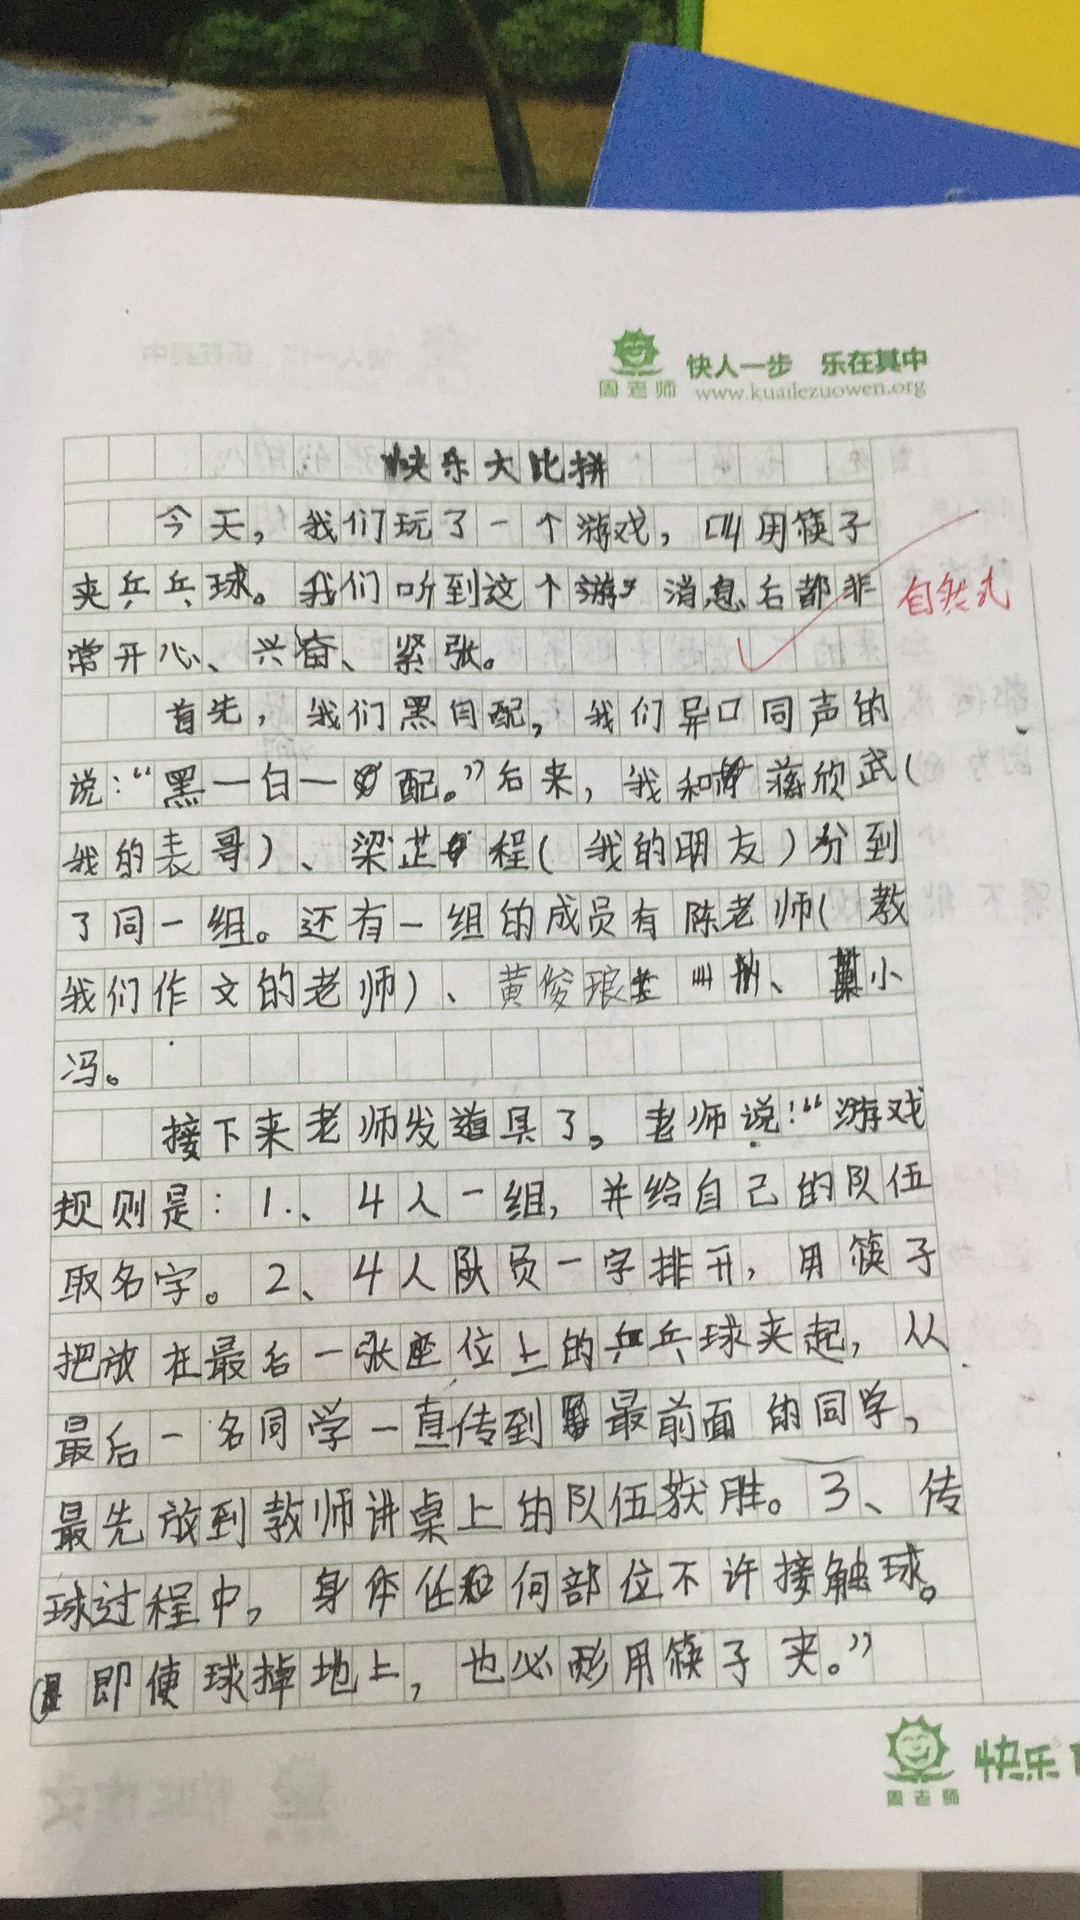 周老师 快人一步 乐在其中
www.kuailezuowen.org
快乐大比拼
今天，我们玩了一个游戏，叫用筷子
夹乒乓球。我们听到这个消息后都非
自然式
常开心、兴奋、紧张。
首先，我们黑白配，我们异口同声的
说：“黑一白一配。”后来，我和蒋欣武（
我的表哥）、梁芷程（我的朋友）分到
了同一组。还有一组的成员有陈老师（教
我们作文的老师）、黄俊琅、小
冯。
接下来老师发道具了。老师说：“游戏
规则是：1.、4人一组，并给自己的队伍
取名字。2、4人队员一字排开，用筷子
把放在最后一张座位上的乒乓球夹起，从
最后一名同学一直传到最前面的同学，
最先放到教师讲桌上的队伍获胜。3、传
球过程中，身体任何部位不许接触球。
即使球掉地上，也必形用筷子夹。”
周老师 快乐